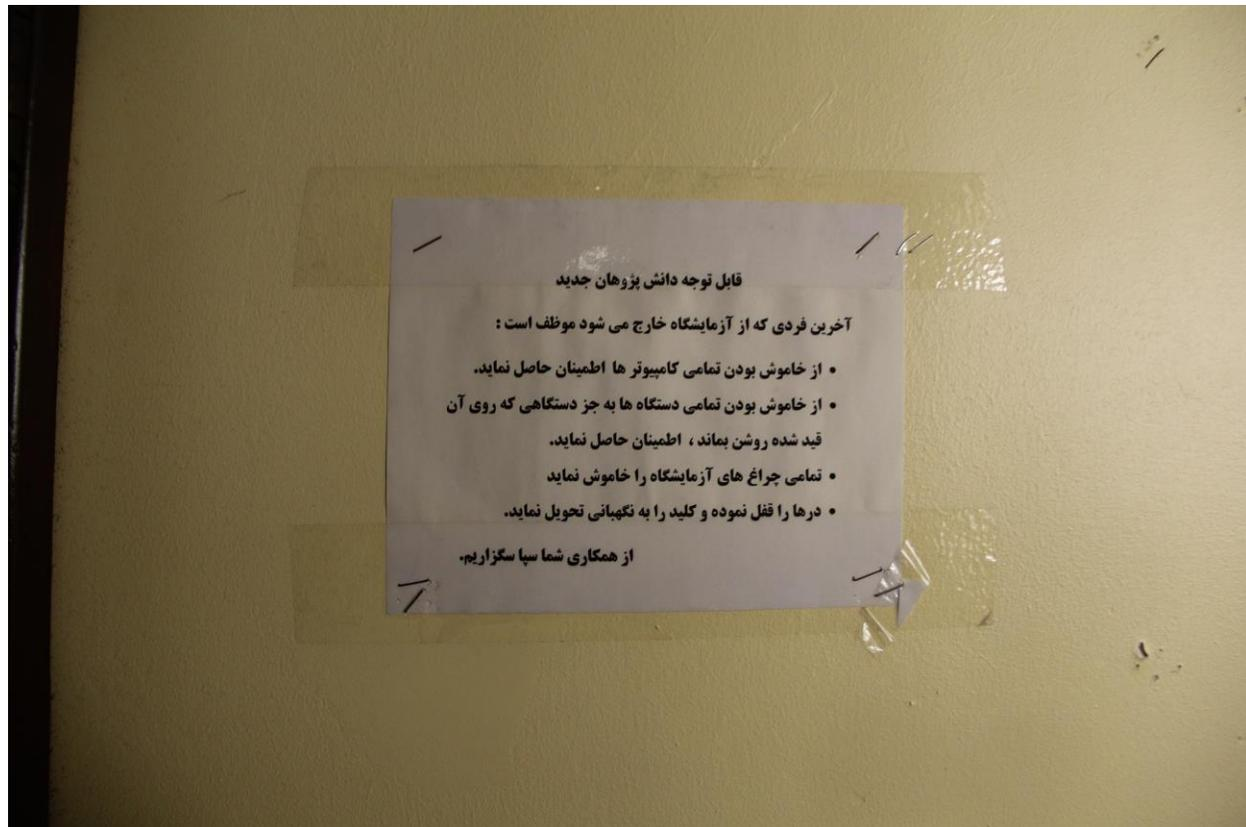 قابل توجه دانش پژوهان جدید
آخرین فردی که از آزمایشگاه خارج می شود موظف است :
• از خاموش بودن تمامی کامپیوتر ها اطمینان حاصل نماید.
• از خاموش بودن تمامی دستگاه ها به جز دستگاهی که روی آن
قید شده روشن بماند ، اطمینان حاصل نماید.
• تمامی چراغ های آزمایشگاه را خاموش نماید
• درها را قفل نموده و کلید را به نگهبانی تحویل نماید.
از همکاری شما سپا سگزاریم.